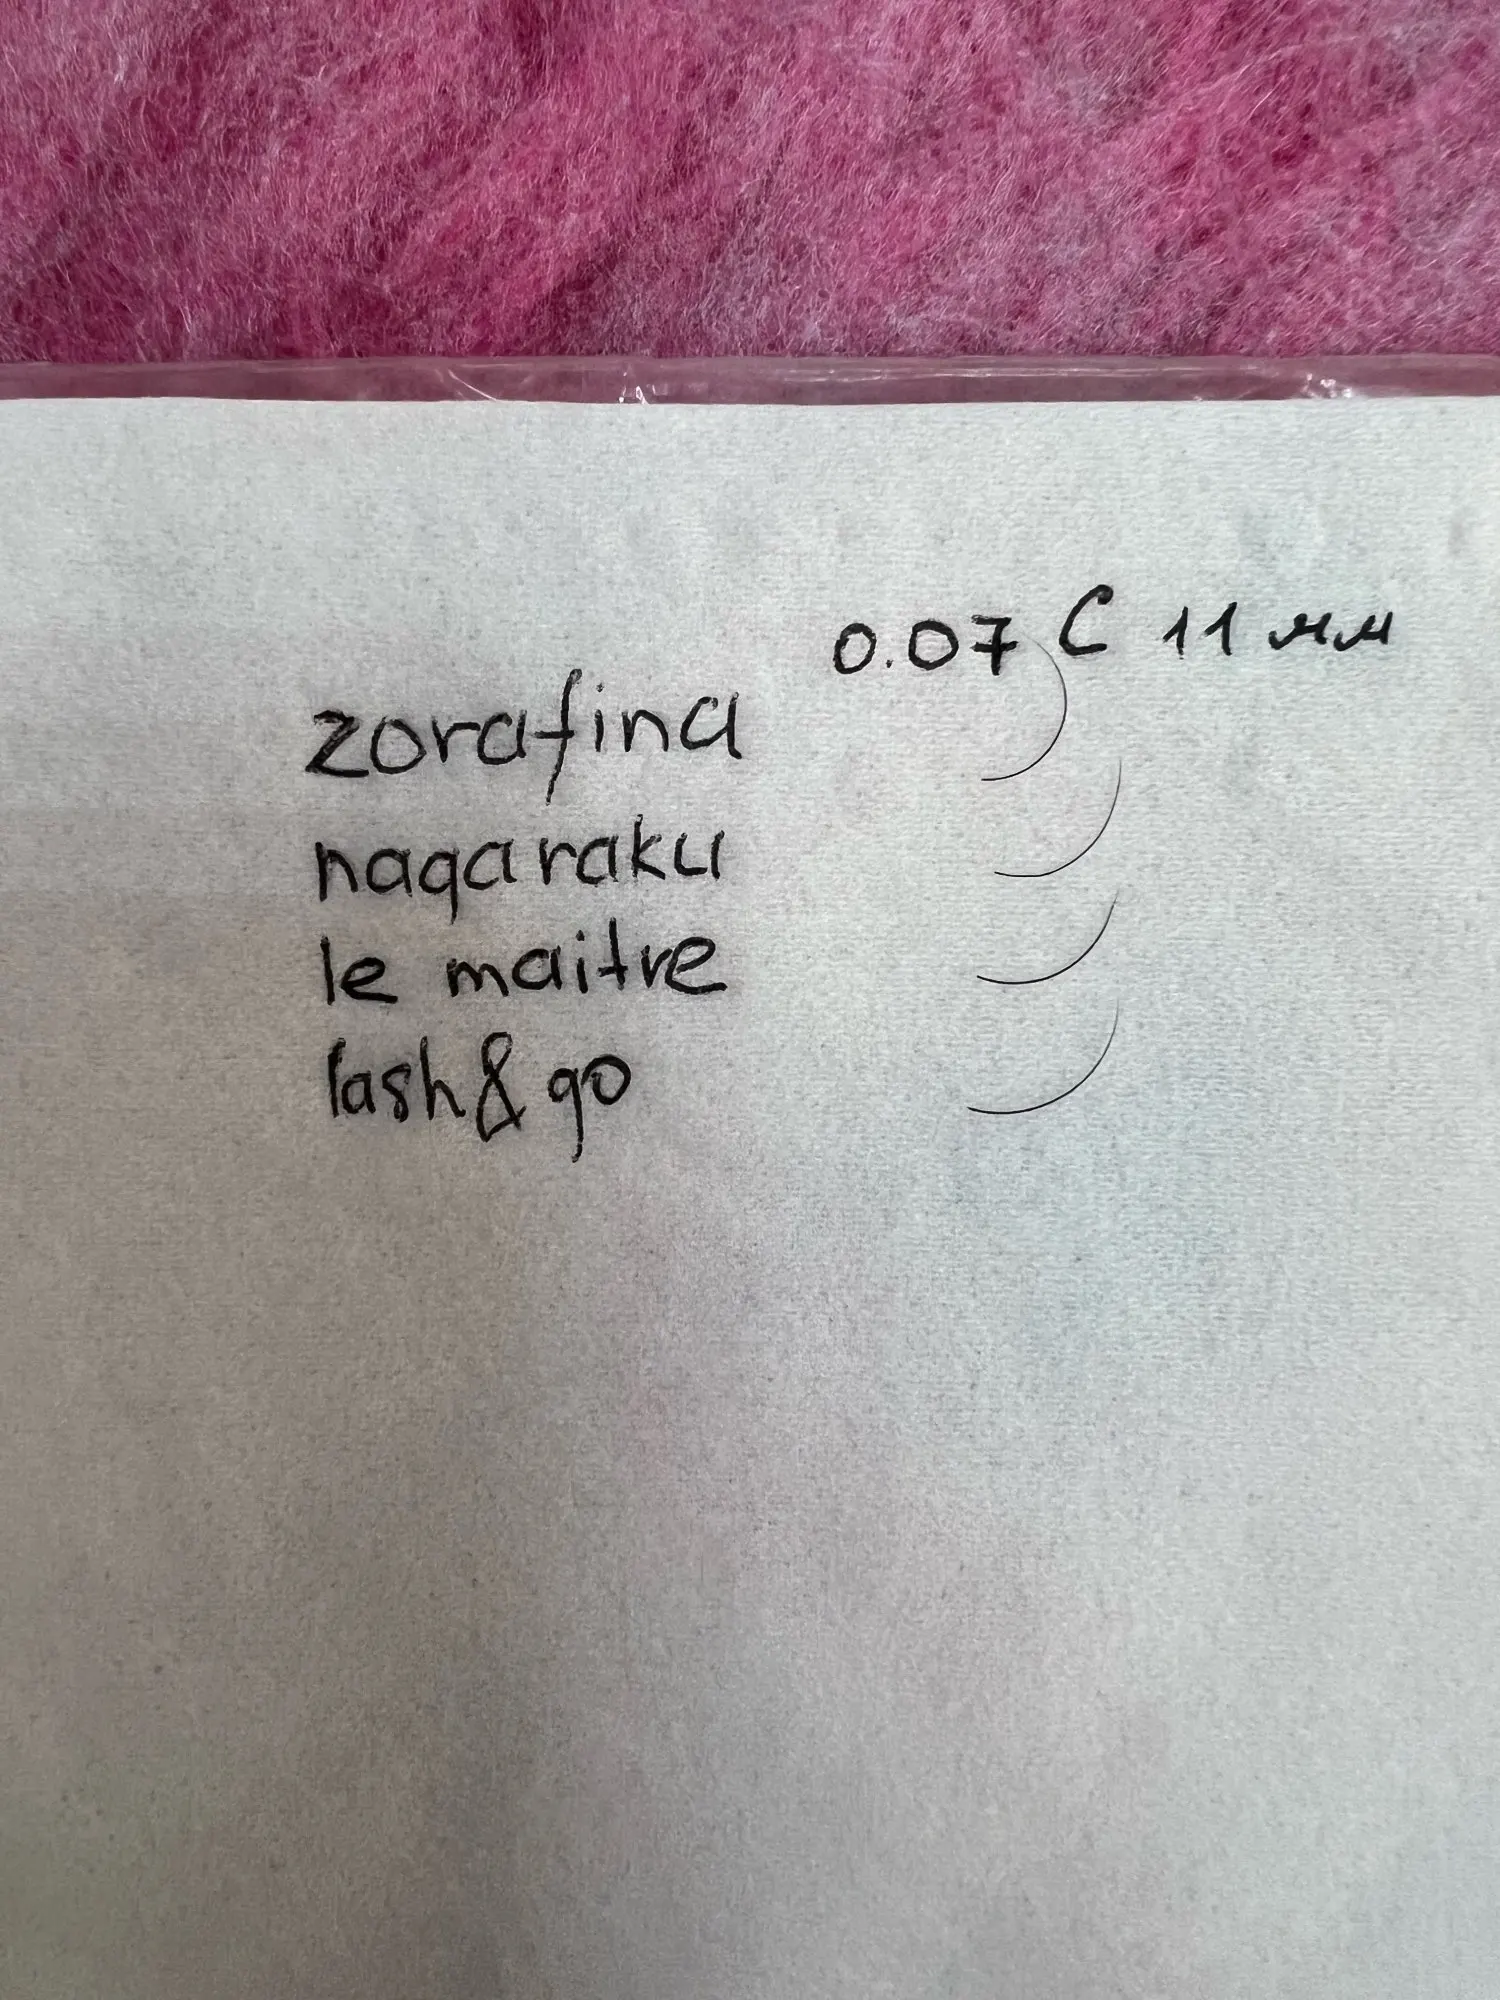 0.07 C 11 мм
zorafina
nagaraku
le maitre
lash&go